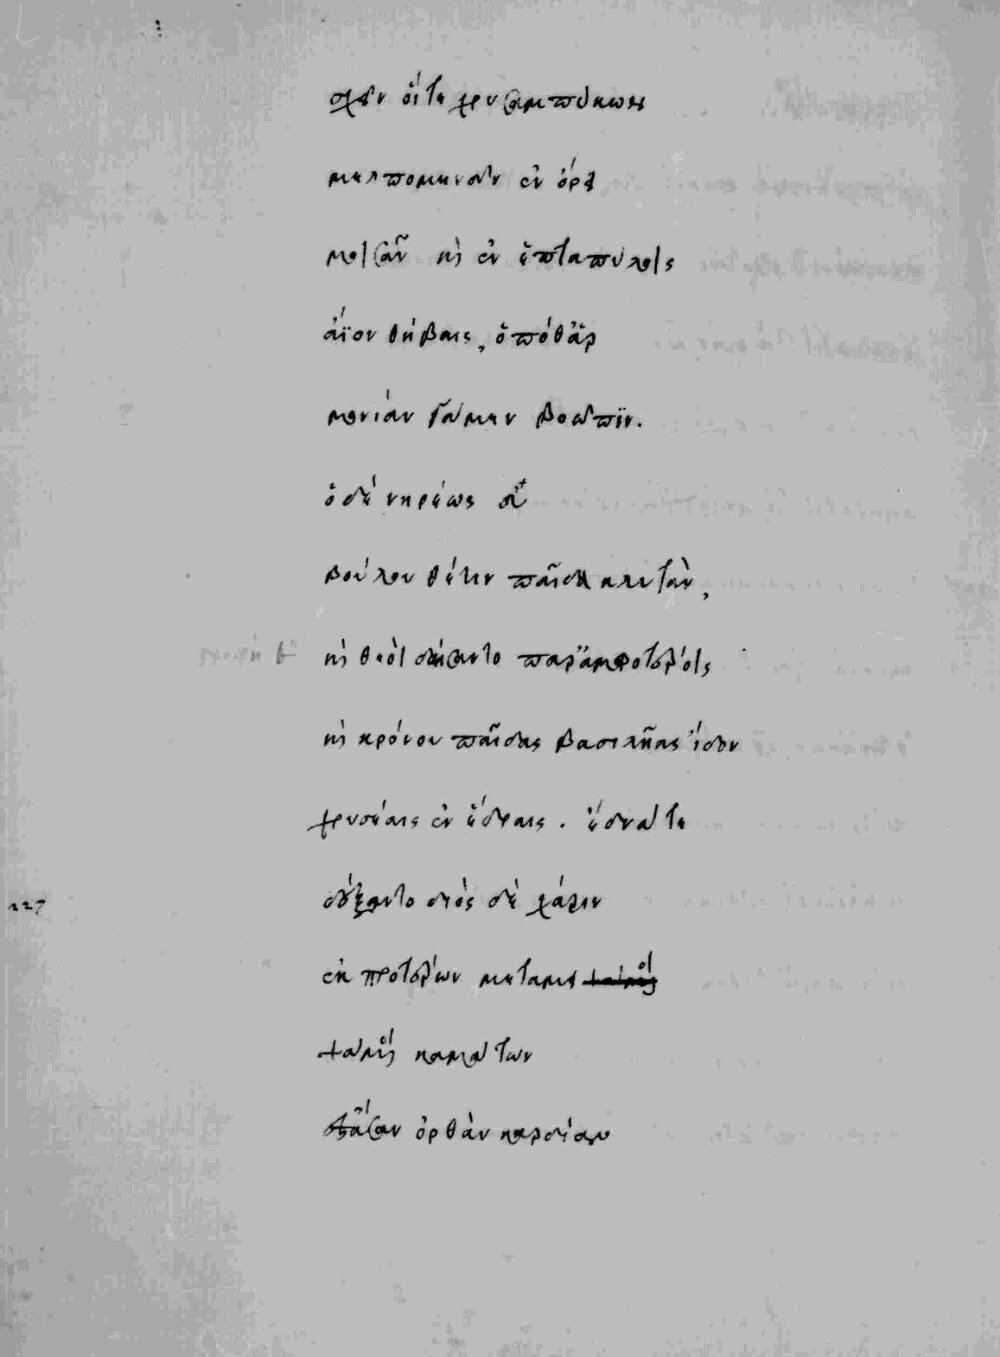 σχεῖν οἵτε χρυσαμπύκων
μελπομενᾶν ἐν ὄρει
μοισᾶν καὶ ἐν ἑπταπύλοις
ἄϊον θήβαις, ὁπόθ' ἁρ
μονίαν γᾶμεν βοῶπιν.
ὁ δὲ νηρέως εὐ
βούλου θέτιν παῖδα κλυτὰν,
καὶ θεοὶ δαίσαντο παρ' ἀμφοτέροις
καὶ κρόνου παῖδας βασιλῆας ἴδον
χρυσέαις ἐν ἕδραις. ἕδνα τε
δέξαντο διὸς δὲ χάριν
ἐκ προτέρων μεταμει
ψάμενοι καμάτων
ἔστασαν ὀρθὰν καρδίαν
127